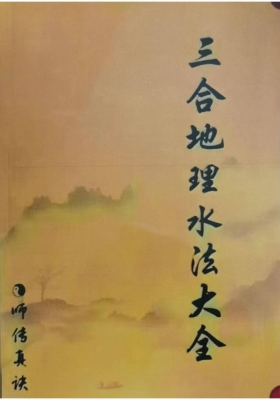 三合地理水法大全
师传真诀